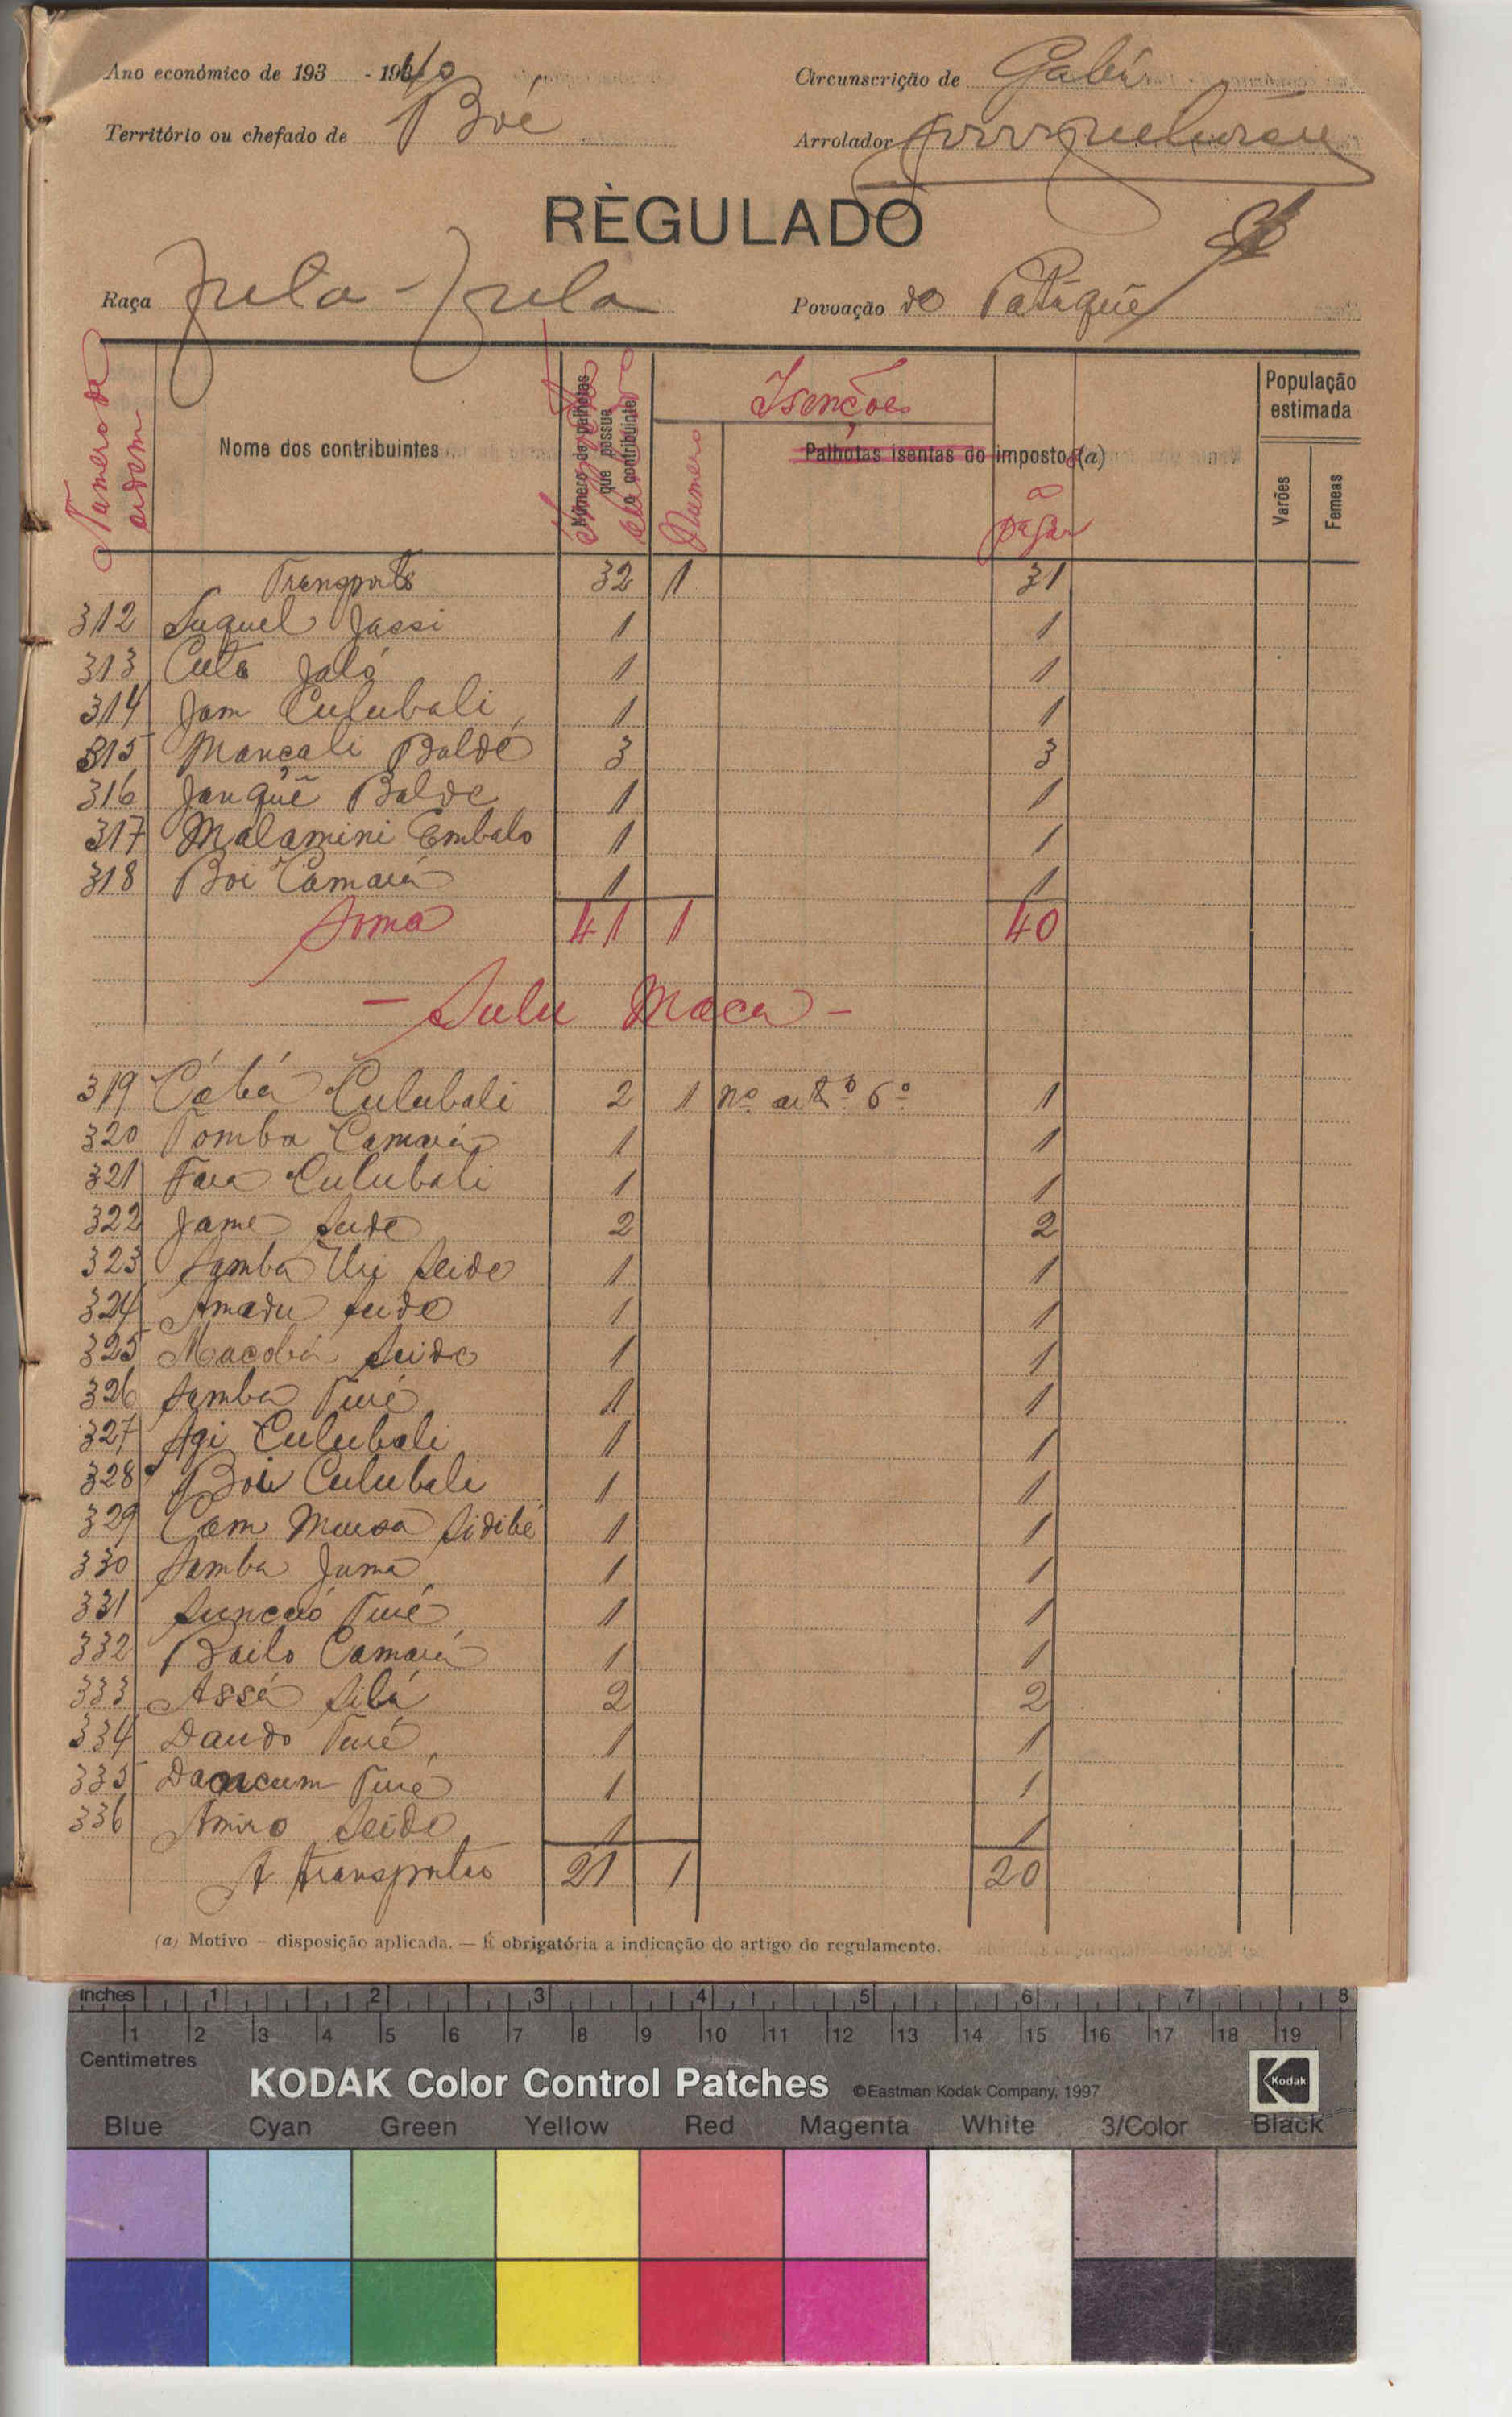 Ano económico de 193 - 1940
Circunscrição de Gabú
Território ou chefado de Boé
Arrolador
RÈGULADO
Raça Fula-Fula
Povoação de Patuque
Numero de ordem
Nome dos contribuintes
Número de palhotas que possue o contribuinte
Isenções
Numero
Palhotas isentas do imposto (a)
a pagar
População estimada
Varões
Femeas
Transporte 32 1 31
312 Suquel Jassi 1 1
313 Cuta Jaló 1 1
314 Jam Culubali 1 1
315 Mancali Baldé 3 3
316 Janquê Balde 1 1
317 Malamini Embalo 1 1
318 Boi Camará 1 1
Soma 41 1 40
- Sulu Maca -
319 Cábá Culubali 2 1 no artº 6º 1
320 Tomba Camará 1 1
321 Fara Culubali 1 1
322 Jame Seide 2 2
323 Samba Uri Seide 1 1
324 Amadu Seide 1 1
325 Macobá Seide 1 1
326 Samba Turé 1 1
327 Agi Culubali 1 1
328 Boi Culubali 1 1
329 Cam Mussa Sidibé 1 1
330 Samba Juma 1 1
331 Suncaró Turé 1 1
332 Bailo Camará 1 1
333 Assá Silá 2 2
334 Daudo Turé 1 1
335 Dancum Turé 1 1
336 Amiro Seide 1 1
A transportar 21 1 20
(a) Motivo - disposição aplicada. — É obrigatória a indicação do artigo do regulamento.
inches 1 2 3 4 5 6 7 8
1 2 3 4 5 6 7 8 9 10 11 12 13 14 15 16 17 18 19
Centimetres
KODAK Color Control Patches ©Eastman Kodak Company, 1997 Kodak
Blue Cyan Green Yellow Red Magenta White 3/Color Black